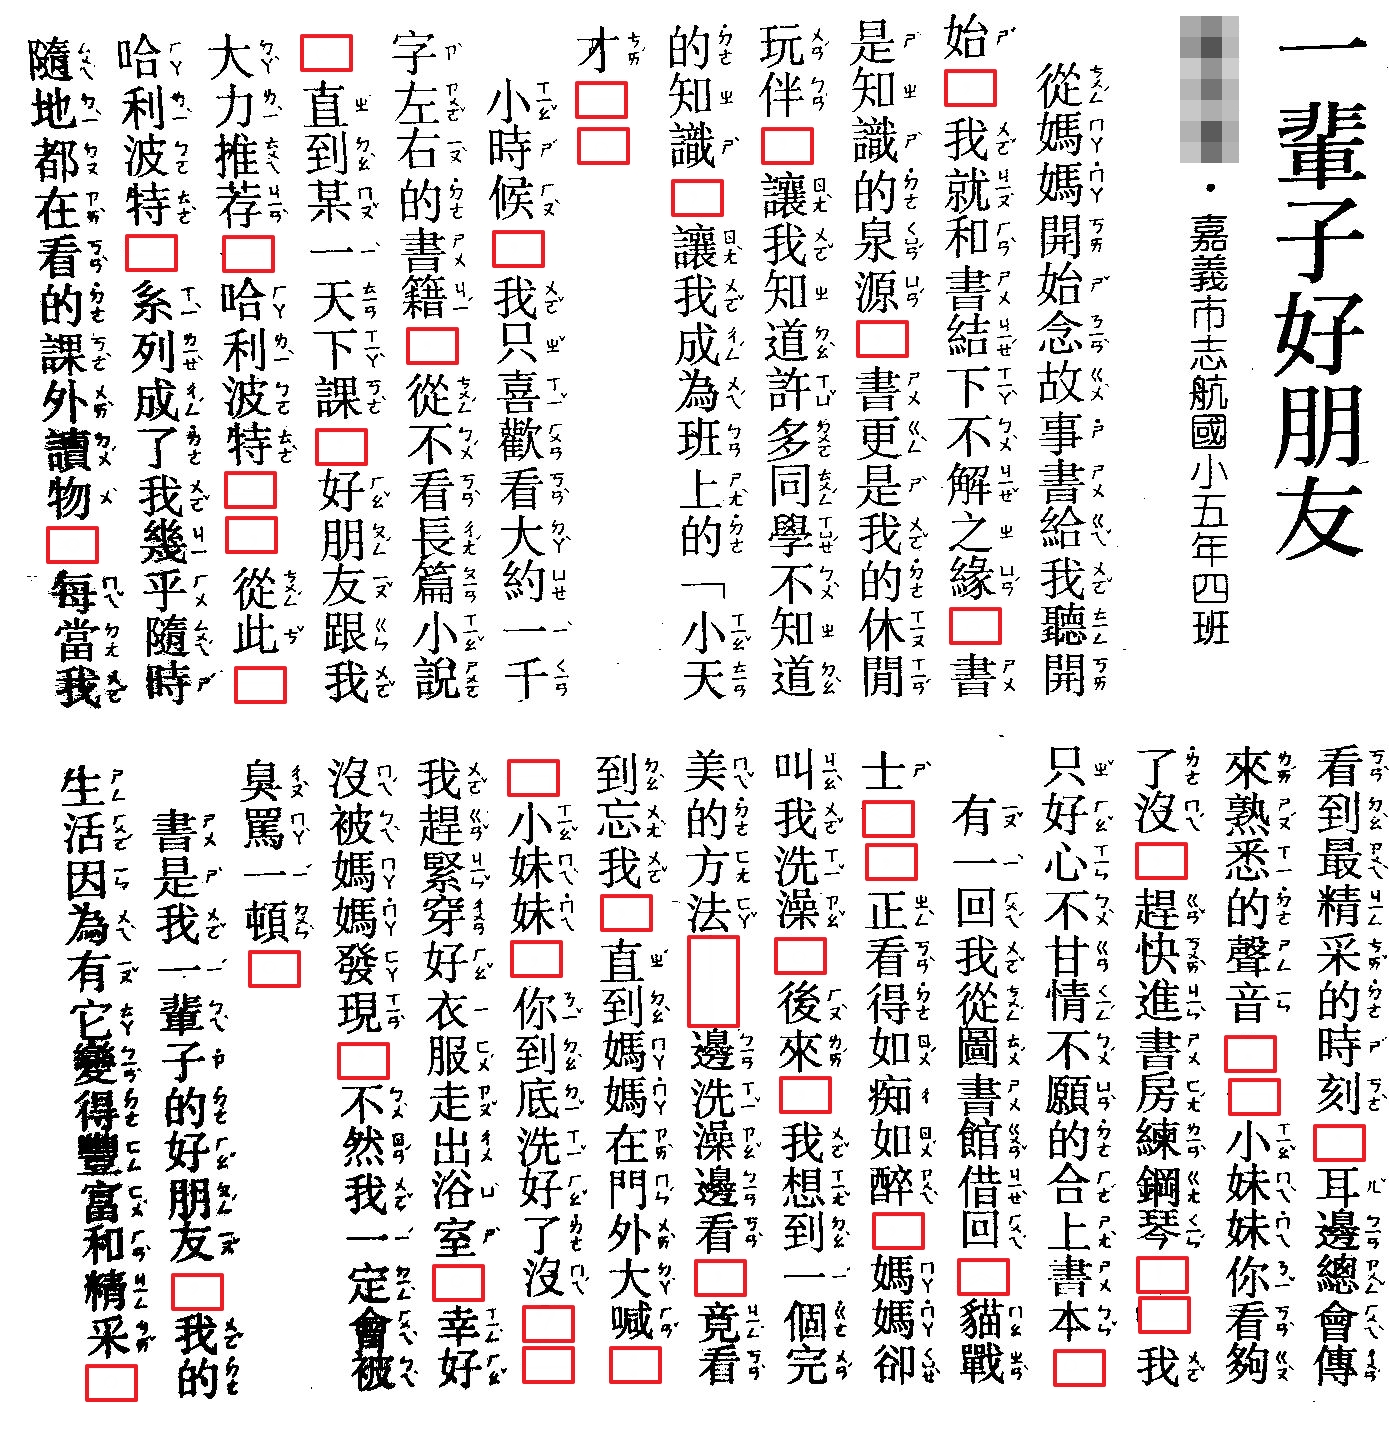 一輩子好朋友
・嘉義市志航國小五年四班
從媽媽開始念故事書給我聽開
始□我就和書結下不解之緣□書
是知識的泉源□書更是我的休閒
玩伴□讓我知道許多同學不知道
的知識□讓我成為班上的「小天
才□□
小時候□我只喜歡看大約一千
字左右的書籍□從不看長篇小說
□直到某一天下課□好朋友跟我
大力推荐□哈利波特□□從此□
哈利波特□系列成了我幾乎隨時
隨地都在看的課外讀物□每當我
看到最精采的時刻□耳邊總會傳
來熟悉的聲音□□小妹妹你看夠
了沒□趕快進書房練鋼琴□□我
只好心不甘情不願的合上書本□
有一回我從圖書館借回□貓戰
士□□正看得如痴如醉□媽媽卻
叫我洗澡□後來□我想到一個完
美的方法□邊洗澡邊看□竟看
到忘我□直到媽媽在門外大喊□
□小妹妹□你到底洗好了沒□□
我趕緊穿好衣服走出浴室□幸好
沒被媽媽發現□不然我一定會被
臭罵一頓□
書是我一輩子的好朋友□我的
生活因為有它變得豐富和精采□